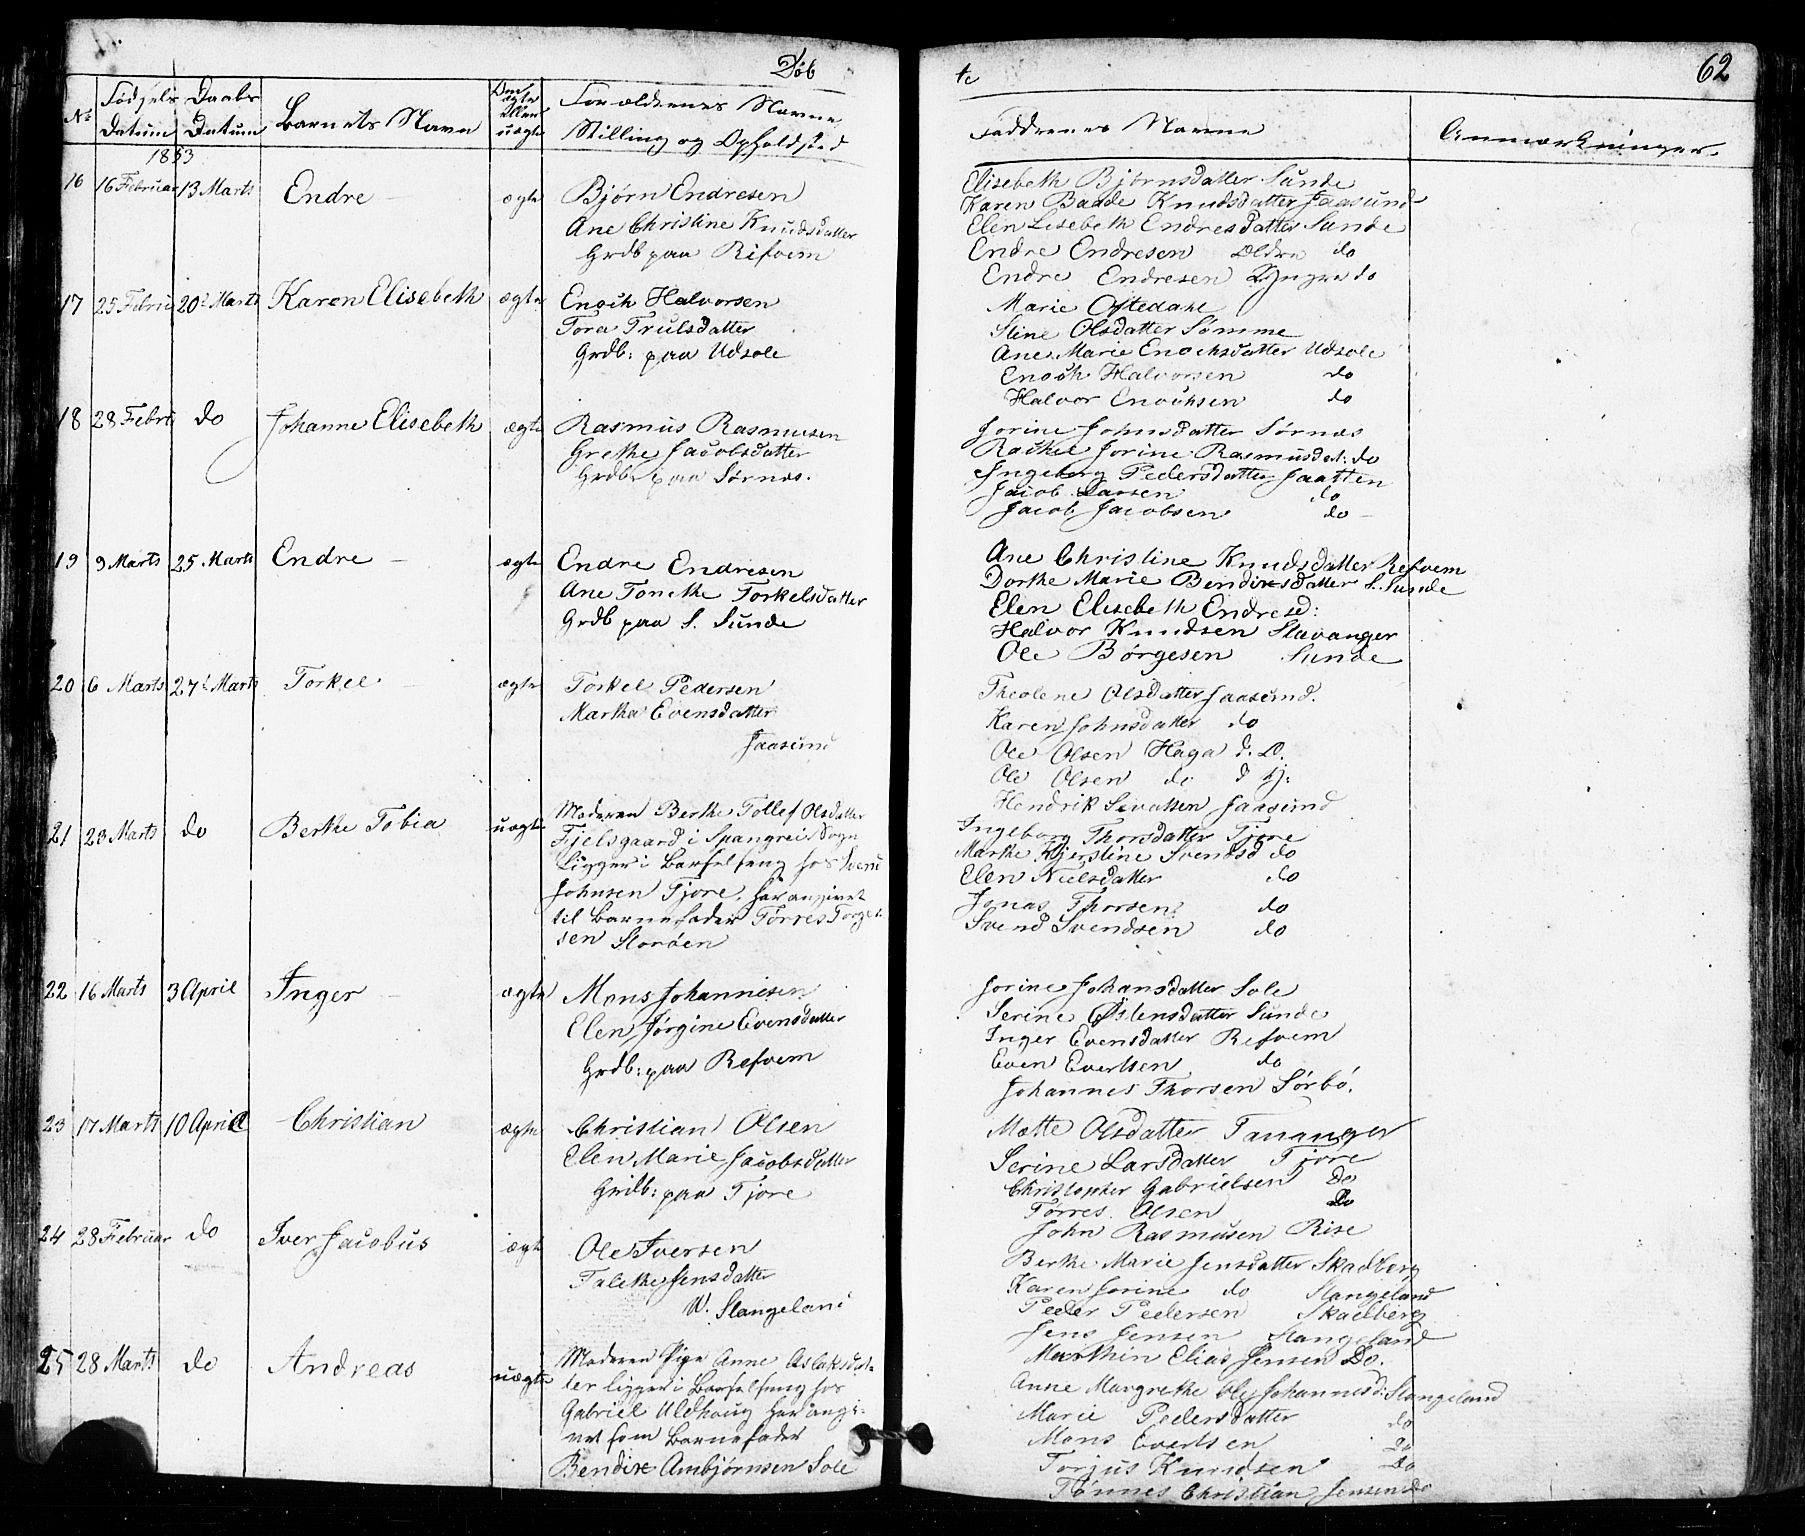 Døb
№
Fødsels Datum
Daabs Datum
Barnets Navn
Om ægte eller uægte
Forældrenes Navne
Stilling og Opholdsted
1853
16 16 Februar 13 Marts Endre ægte Bjørn Endresen
Ane Christine Knudsdatter
Grdb paa Refvem
17 25 Febru 20de Marts Karen Elisebeth ægte Enoch Halvorsen
Tora Trulsdatter
Grdb: paa Udsole
18 28 Febr do Johanne Elisebeth ægte Rasmus Rasmusen
Grethe Jacobsdatter
Grdb. paa Sørnæs.
19 9 Marts 25 Marts Endre ægte Endre Endresen
Ane Tonethe Torkelsdatter
Grdb paa S. Sunde
20 6 Marts 27d Marts Torkel ægte Torkel Pedersen
Martha Evensdatter
Jaasund
21 23 Marts do Berthe Tobia uægte Moderen Berthe Tollef Olsdatter
Fjelsgaard i Spangrei Sogn
Ligger i Barselseng hos Svend
Johnsen Tjore, har angivet
til Barnefader Tørres Torge
sen Storøen
22 16 Marts 3 April Inger ægte Mons Johannesen
Elen Jørgine Evensdatter
Grdb: paa Refvem
23 17 Marts 10 April Christian ægte Christian Olsen
Elen Marie Jacobsdatter
Grdb: paa Tjore
24 28 Februar do Iver Jacobus ægte Ole Iversen
Talethe Jensdatter
W. Stangeland
25 28 Marts do Andreas uægte Moderen Pige Anne Aslaksdat
ter ligger i Barselseng hos
Gabriel Uldhoug har angi
vet som Barnefader
Bendix Ambjørnsen Sole
te
62
Faddrenes Navne
Anmærkninger.
Elisebeth Bjørnsdatter Sunde
Karen Baade Knudsdatter Jaasund
Elen Lisebeth Endresdatter Sunde
Endre Endresen Ældre do
Endre Endresen Yngre do
Marie Oftedahl
Stine Olsdatter Sømme
Ane Marie Enochsdatter Udsole
Enoch Halvorsen do
Halvor Enochsen do
Jorine Johnsdatter Sørnæs
Rachel Jorine Rasmusdat: do
Ingeborg Pedersdatter Jaatten
Jacob Larsen do
Jacob Jacobsen do
Ane Christine Knudsdatter Refvem
Dorthe Marie Bendixsdatter S. Sunde
Elen Elisebeth Endresd:
Halvor Knudsen Stavanger
Ole Børgesen Sunde
Theolene Olsdatter Jaasund.
Karen Johnsdatter do
Ole Olsen Haga d. Æ.
Ole Olsen do d y:
Hendrik Sivertsen Jaasund
Ingeborg Thorsdatter Tjore
Marthe Kjerstine Svendsd do
Elen Nielsdatter do
Jonas Thorsen do
Svend Svendsen do
Jorine Johansdatter Sole
Serine Østensdatter Sunde
Inger Evensdatter Refvem
Even Evertsen do
Johannes Thorsen Sørbø.
Mætte Olsdatter Tananger
Serine Larsdatter Tjore
Christopher Gabrielsen Do
Tørres Olsen Do
John Rasmusen Rise
Berthe Marie Jensdatter Skadberg
Karen Jorine do Stangeland
Peder Pedersen Skadberg
Jens Jensen Stangeland
Marthin Elias Jensen Do.
Anne Margrethe Johannesd: Stangeland
Marie Pedersdatter do
Mons Evertsen Do
Torjus Knudsen Do
Tønnes Christian Jensen do